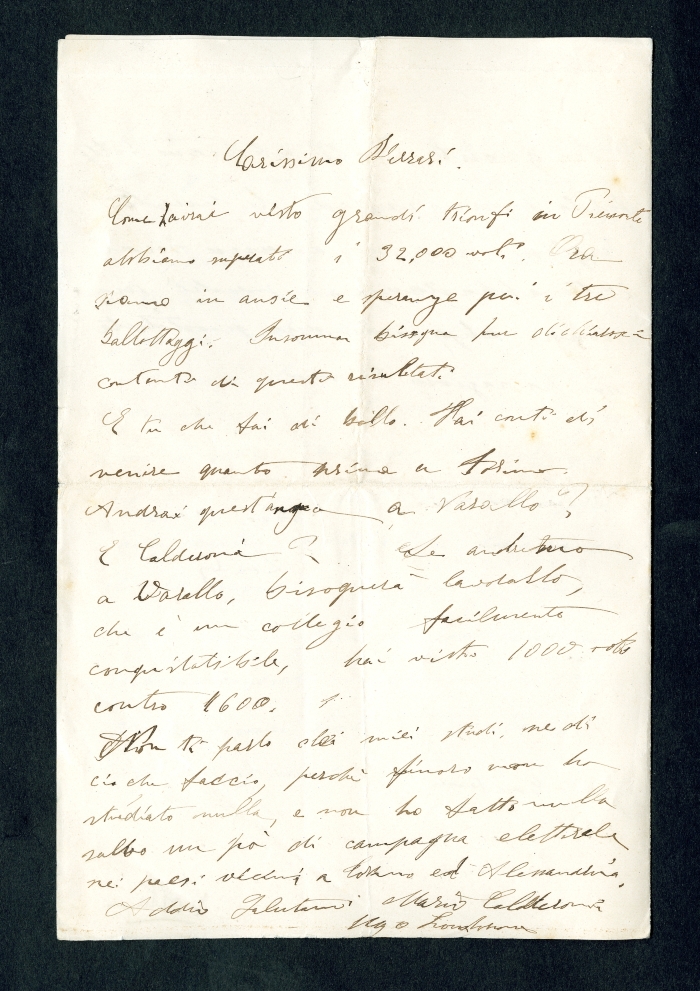 Carissimo Ferrari.
Come avrai visto grandi trionfi in Piemonte
abbiamo superato i 32,000 voti. Ora
siamo in ansie e speranze per i tre
ballottaggi. Insomma bisogna pur dichiararsi
contenti di questi risultati.
E tu che fai di bello. Hai conti di
venire quanto prima a Torino.
Andrai quest'anno a Varallo?
E Calderoni? Se andremo
a Varallo, bisognerà lavorarlo,
che è un collegio facilmente
conquistabile, hai visto 1000 voti
contro 1600.
Non ti parlo dei miei studi, nè di
ciò che faccio, perchè finora non ho
studiato nulla, e non ho fatto nulla
salvo un pò di campagna elettorale
nei paesi vicini a Torino ed Alessandria.
Addio Salutami Mario Calderoni
Ugo